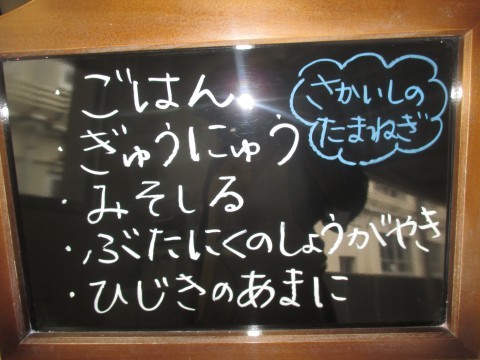 ・ごはん
・ぎゅうにゅう
・みそしる
・ぶたにくのしょうがやき
・ひじきのあまに
さかいしの
たまねぎ